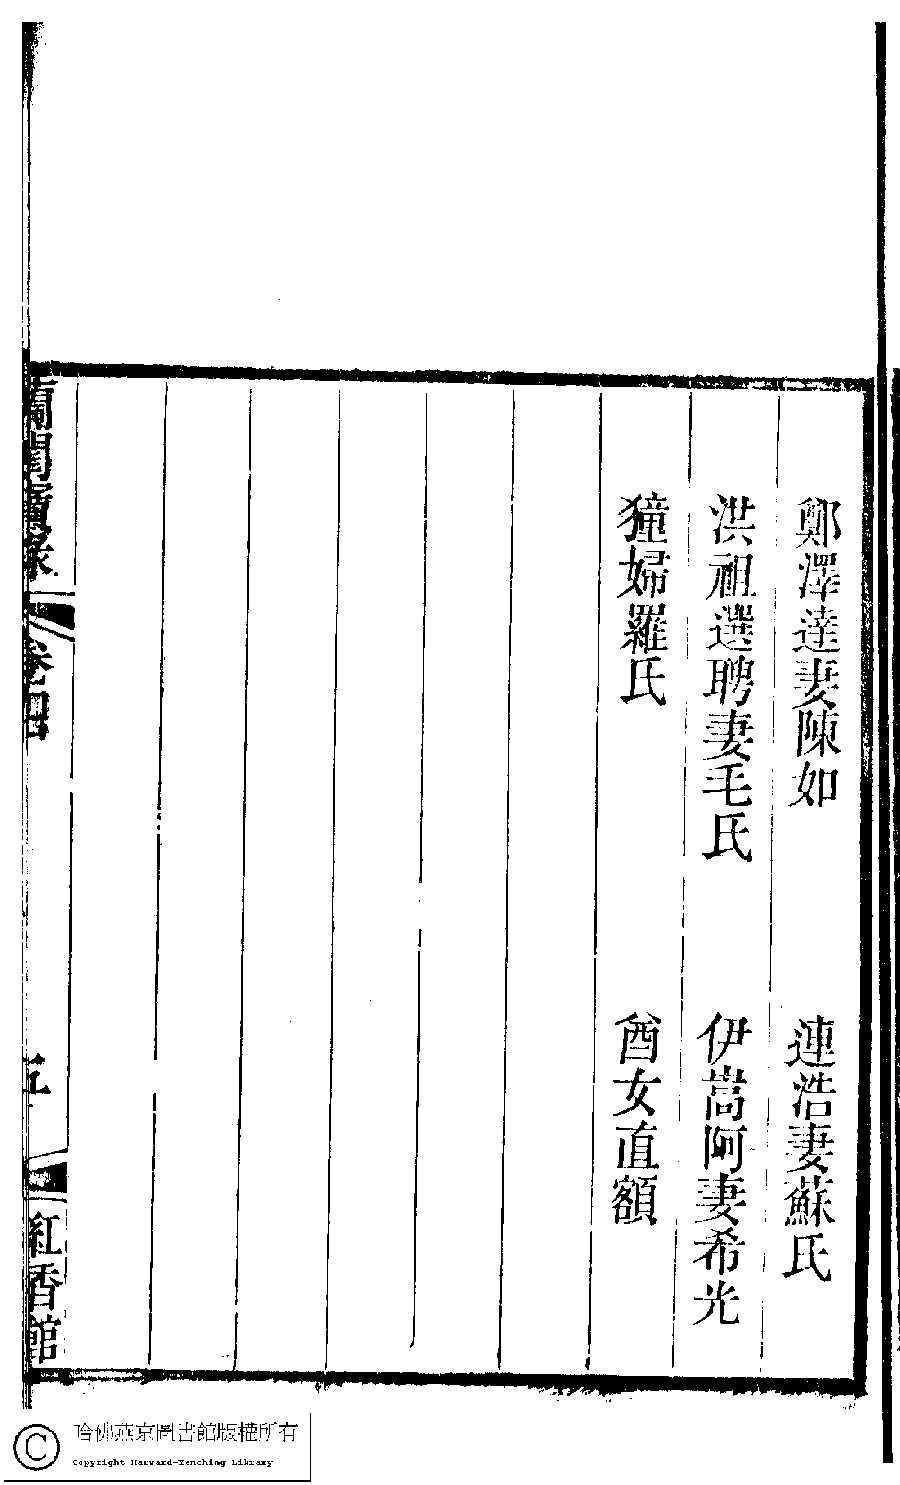 鄭澤達妻陳如
連浩妻蘇氏
洪祖選聘妻毛氏
伊嵩阿妻希光
獞婦羅氏
酋女直額
蘭閨寶錄
卷四
五
紅香館
哈佛燕京圖書館版權所有
Copyright Harvard-Yenching Library